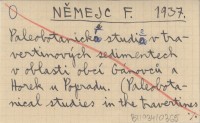 O NĚMEJC F. 1937.
Paleobotanická studie v tra-
vertinových sedimentech
v oblasti obcí Gánovců a
Horek u Popradu. (Paleobota-
nical studies in the travertines